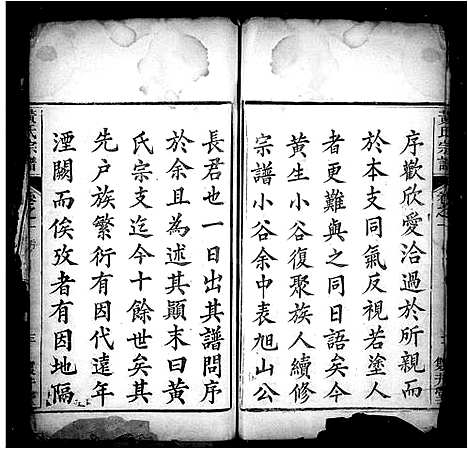 黃氏宗譜
序歡欣愛洽過於所親而
於本支同氣反視若塗人
者更難與之同日語矣今
黃生小谷復聚族人續修
宗譜小谷余中表旭山公
長君也一日出其譜問序
於余且為述其顛末曰黃
氏宗支迄今十餘世矣其
先户族繁衍有因代遠年
湮闕而俟攷者有因地隔
黃氏宗譜